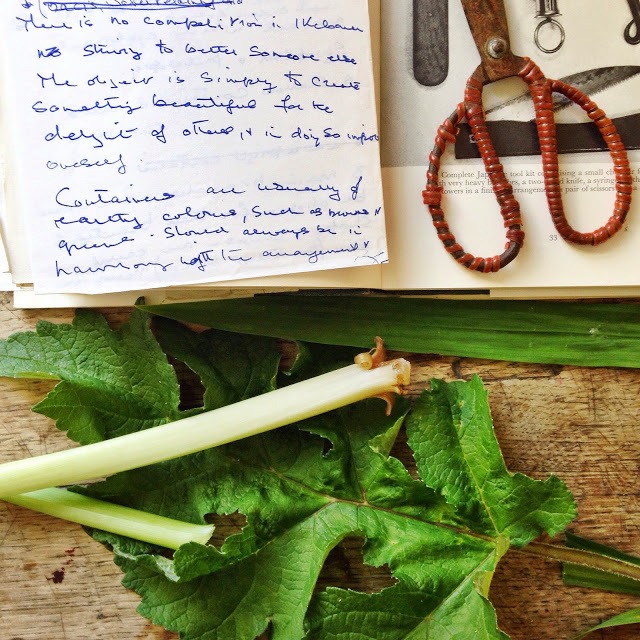 There is no competition in Ikebana
no striving to better someone else
The object is simply to create
something beautiful for the
delight of others, & in doing so improve
oneself.
Containers are usually of
earthy colours, such as browns &
greens. Should always be in
harmony with the arrangement &
Complete Japanese tool kit containing a small
very heavy a two- knife, a syringe
flowers in a arrangement pair of scissors
33